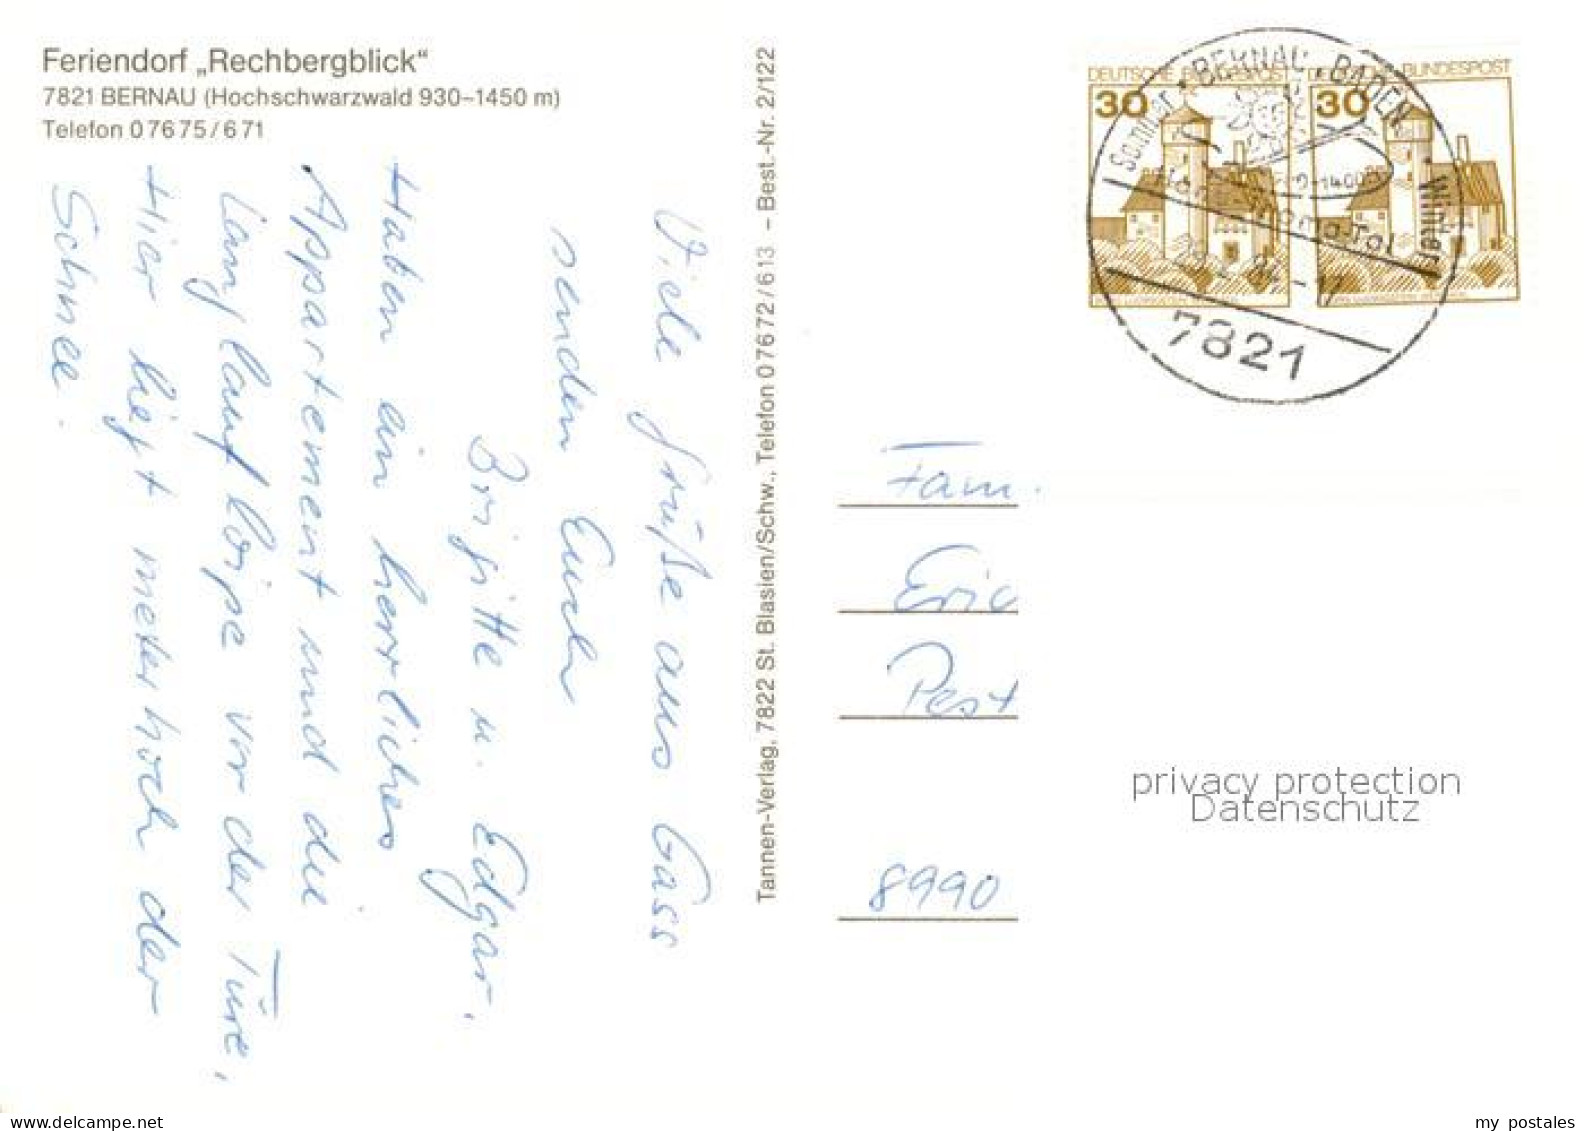 Feriendorf „Rechbergblick“
7821 BERNAU (Hochschwarzwald 930–1450 m)
Telefon 0 76 75 / 6 71
Viele Grüße aus Gass
senden Euch
Brigitte u. Edgar.
Haben ein herrliches
Appartement und die
Langlaufloipe vor der Türe,
Hier liegt meterhoch der
Schnee.
Tannen-Verlag, 7822 St. Blasien/Schw., Telefon 0 76 72 / 6 13 – Best.-Nr. 2/122
DEUTSCHE BUNDESPOST
30
BUNDESPOST
30
Sommer · BERNAU · BADEN Winter
-1400
17
7821
Fam.
Eric
Pest
8990
privacy protection
Datenschutz
my postales